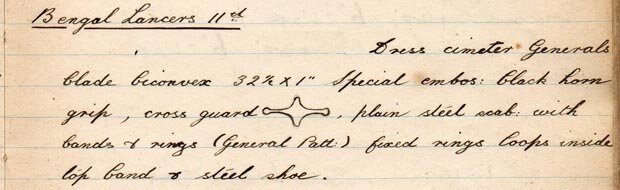 Bengal Lancers 11th
Dress cimeter Generals
blade biconvex 32½ x 1" Special embos: black horn
grip, cross guard , plain steel scab: with
bands & rings (General Patt:) fixed rings loops inside
top band & steel shoe.